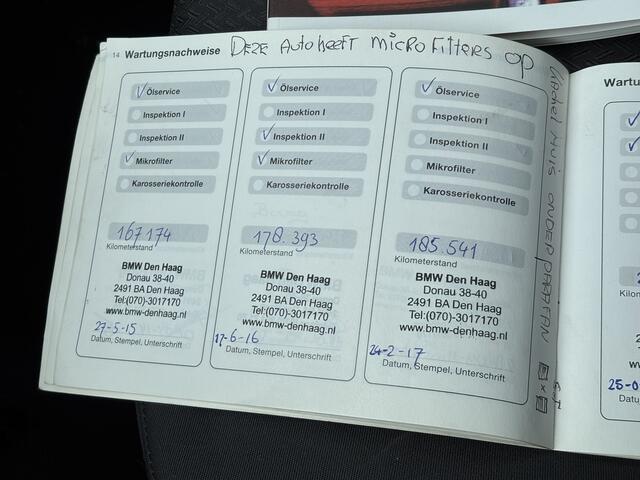 14 Wartungsnachweise DEZE AUTO HEEFT MICROFILTERS OP
KACHEL HUIS ONDER PARAVAN
✓ Ölservice
Inspektion I
Inspektion II
✓ Mikrofilter
Karosseriekontrolle
167174
Kilometerstand
BMW Den Haag
Donau 38-40
2491 BA Den Haag
Tel:(070)-3017170
www.bmw-denhaag.nl
27-5-15
Datum, Stempel, Unterschrift
✓ Ölservice
Inspektion I
✓ Inspektion II
✓ Mikrofilter
Karosseriekontrolle
178.393
Kilometerstand
BMW Den Haag
Donau 38-40
2491 BA Den Haag
Tel:(070)-3017170
www.bmw-denhaag.nl
17-6-16
Datum, Stempel, Unterschrift
✓ Ölservice
Inspektion I
Inspektion II
Mikrofilter
Karosseriekontrolle
185.541
Kilometerstand
BMW Den Haag
Donau 38-40
2491 BA Den Haag
Tel:(070)-3017170
www.bmw-denhaag.nl
24-2-17
Datum, Stempel, Unterschrift